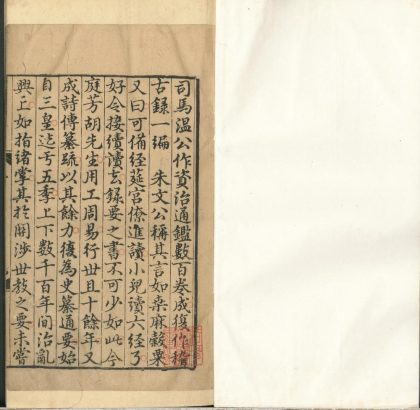 司馬溫公作資治通鑑數百卷成復作稽
古録一編 朱文公稱其言如桑麻穀粟
又曰可備經筵官僚進讀小兒讀六經了
好令接續讀去録要之書不可少如此今
庭芳胡先生用工周易行世且十餘年又
成詩傳纂疏以其餘力復為史纂通要始
自三皇迄于五季上下數千百年間治亂
興亡如指諸掌其於關渉世教之要未嘗